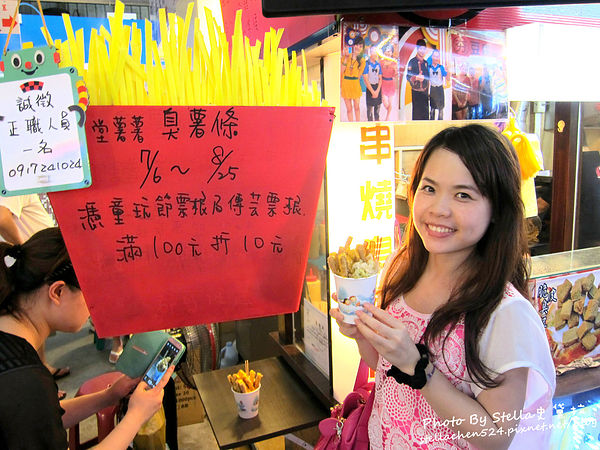 誠徵
正職人員
一名
0917241024
堂薯薯 臭薯條
7/6～ 8/25
憑童玩節票根及傳芸票根
滿100元折10元
串
燒
Photo By Stella史黛拉
stellachen524.pixnet.net/blog